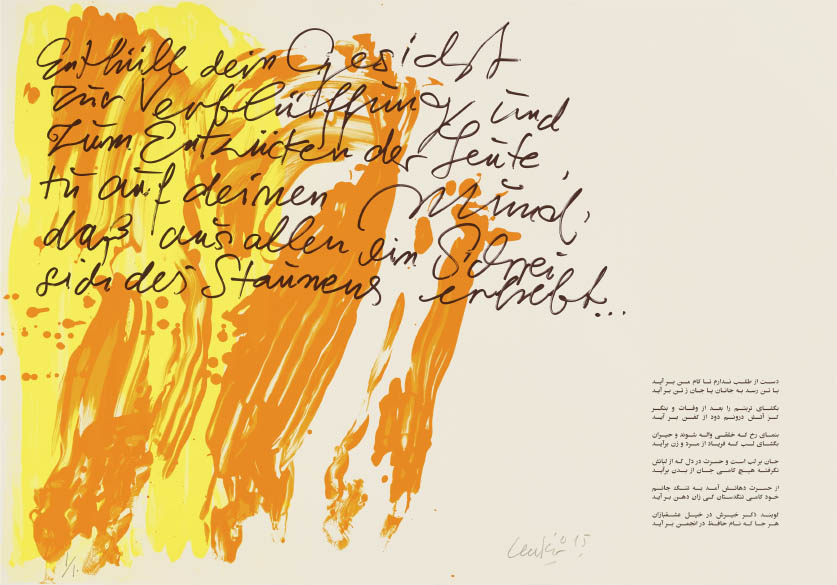 Enthüll dein Gesicht
zur Verblüffung und
zum Entzücken der Leute,
tu auf deinen Mund,
daß aus allen ein Schrei
sich des Staunens erhebt...
دست از طلب ندارم تا کام من بر آید
یا تن رسد به جانان یا جان ز تن بر آید
بگشای تربتم را بعد از وفات و بنگر
کز آتش درونم دود از کفن بر آید
بنمای رخ که خلقی واله شوند و حیران
بگشای لب که فریاد از مرد و زن برآید
جان بر لب است و حسرت در دل که از لبانش
نگرفته هیچ کامی جان از بدن برآید
از حسرت دهانش آمد به تنگ جانم
خود کامی تنگدستان کی زان دهن بر آید
گویند ذکر خیرش در خیل عشقبازان
هر جا که نام حافظ در انجمن بر آید
1/1
15